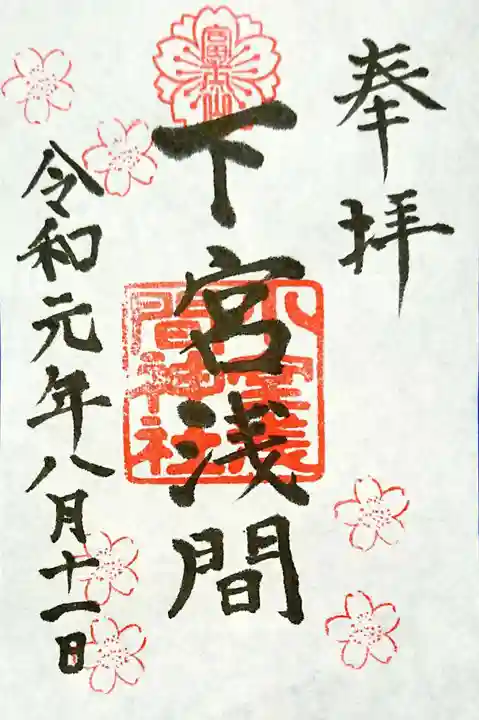 奉拝
富士山
下宮浅間
間神社
令和元年八月十一日